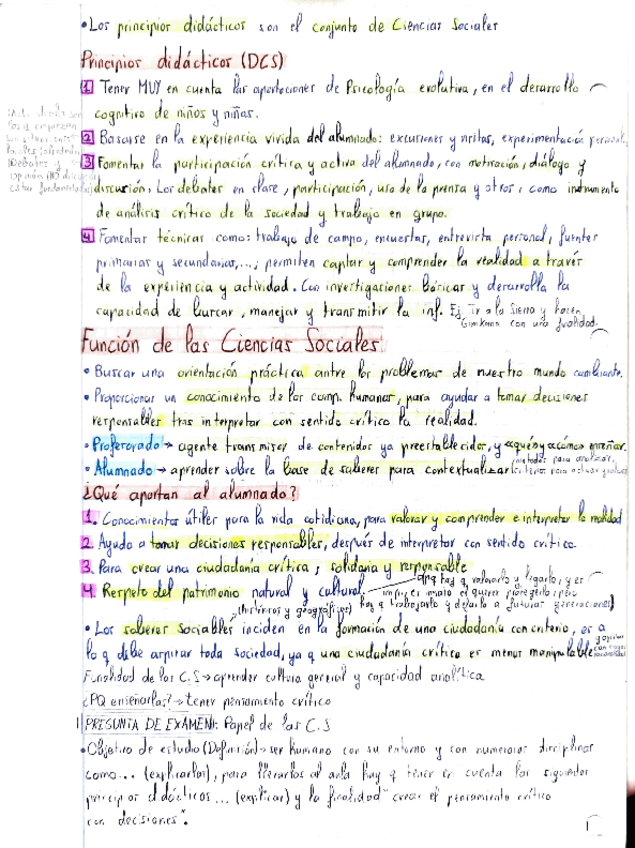 • Los principios didácticos son el conjunto de Ciencias Sociales
Principios didácticos (DCS)
1 Tener MUY en cuenta las aportaciones de Psicología evolutiva, en el desarrollo
cognitivo de niños y niñas.
2 Basarse en la experiencia vivida del alumnado: excursiones y visitas, experimentación personal,
3 Fomentar la participación crítica y activa del alumnado, con motivación, diálogo y
discusión. Los debates en clase, participación, uso de la prensa y otros, como instrumento
de análisis crítico de la sociedad y trabajo en grupo.
4 Fomentar técnicas como: trabajo de campo, encuestas, entrevista personal, fuentes
primarias y secundarias,...; permiten captar y comprender la realidad a través
de la experiencia y actividad. Con investigaciones básicas y desarrolla la
capacidad de buscar, manejar y transmitir la inf. Ej. Ir a la Sierra y hacen
Gimkana con una finalidad.
Función de las Ciencias Sociales:
• Buscar una orientación práctica antre los problemas de nuestro mundo cambiante.
• Proporcionar un conocimiento de los comp. humanos, para ayudar a tomar decisiones
responsables tras interpretar con sentido crítico la realidad.
• Profesorado → agente transmisor de contenidos ya preestablecidos, y «qué» y «cómo» enseñar.
• Alumnado → aprender sobre la base de saberes para contextualizar
¿Qué aportan al alumnado?
1. Conocimientos útiles para la vida cotidiana, para valorar y comprender e interpretar la realidad
2. Ayuda a tomar decisiones responsables, después de interpretar con sentido crítico.
3. Para crear una ciudadanía crítica, solidaria y responsable
4. Respeto del patrimonio natural y cultural
(históricos y geográficos) hay q trabajarlo y dejarlo a futuras generaciones
• Los saberes sociables inciden en la formación de una ciudadanía con criterio, es a
lo q debe aspirar toda sociedad, ya q una ciudadanía crítica es menos manipulable
Finalidad de las C.S → aprender cultura general y capacidad analítica
¿PQ enseñarlas? → tener pensamiento crítico
PREGUNTA DE EXAMEN: Papel de las C.S
• Objetivo de estudio (Definición) → ser humano con su entorno y con numerosas disciplinas
como... (explicarlas), para llevarlos al aula hay q tener en cuenta los siguientes
principios didácticos... (explicar) y la finalidad "crear el pensamiento crítico
con decisiones".
1